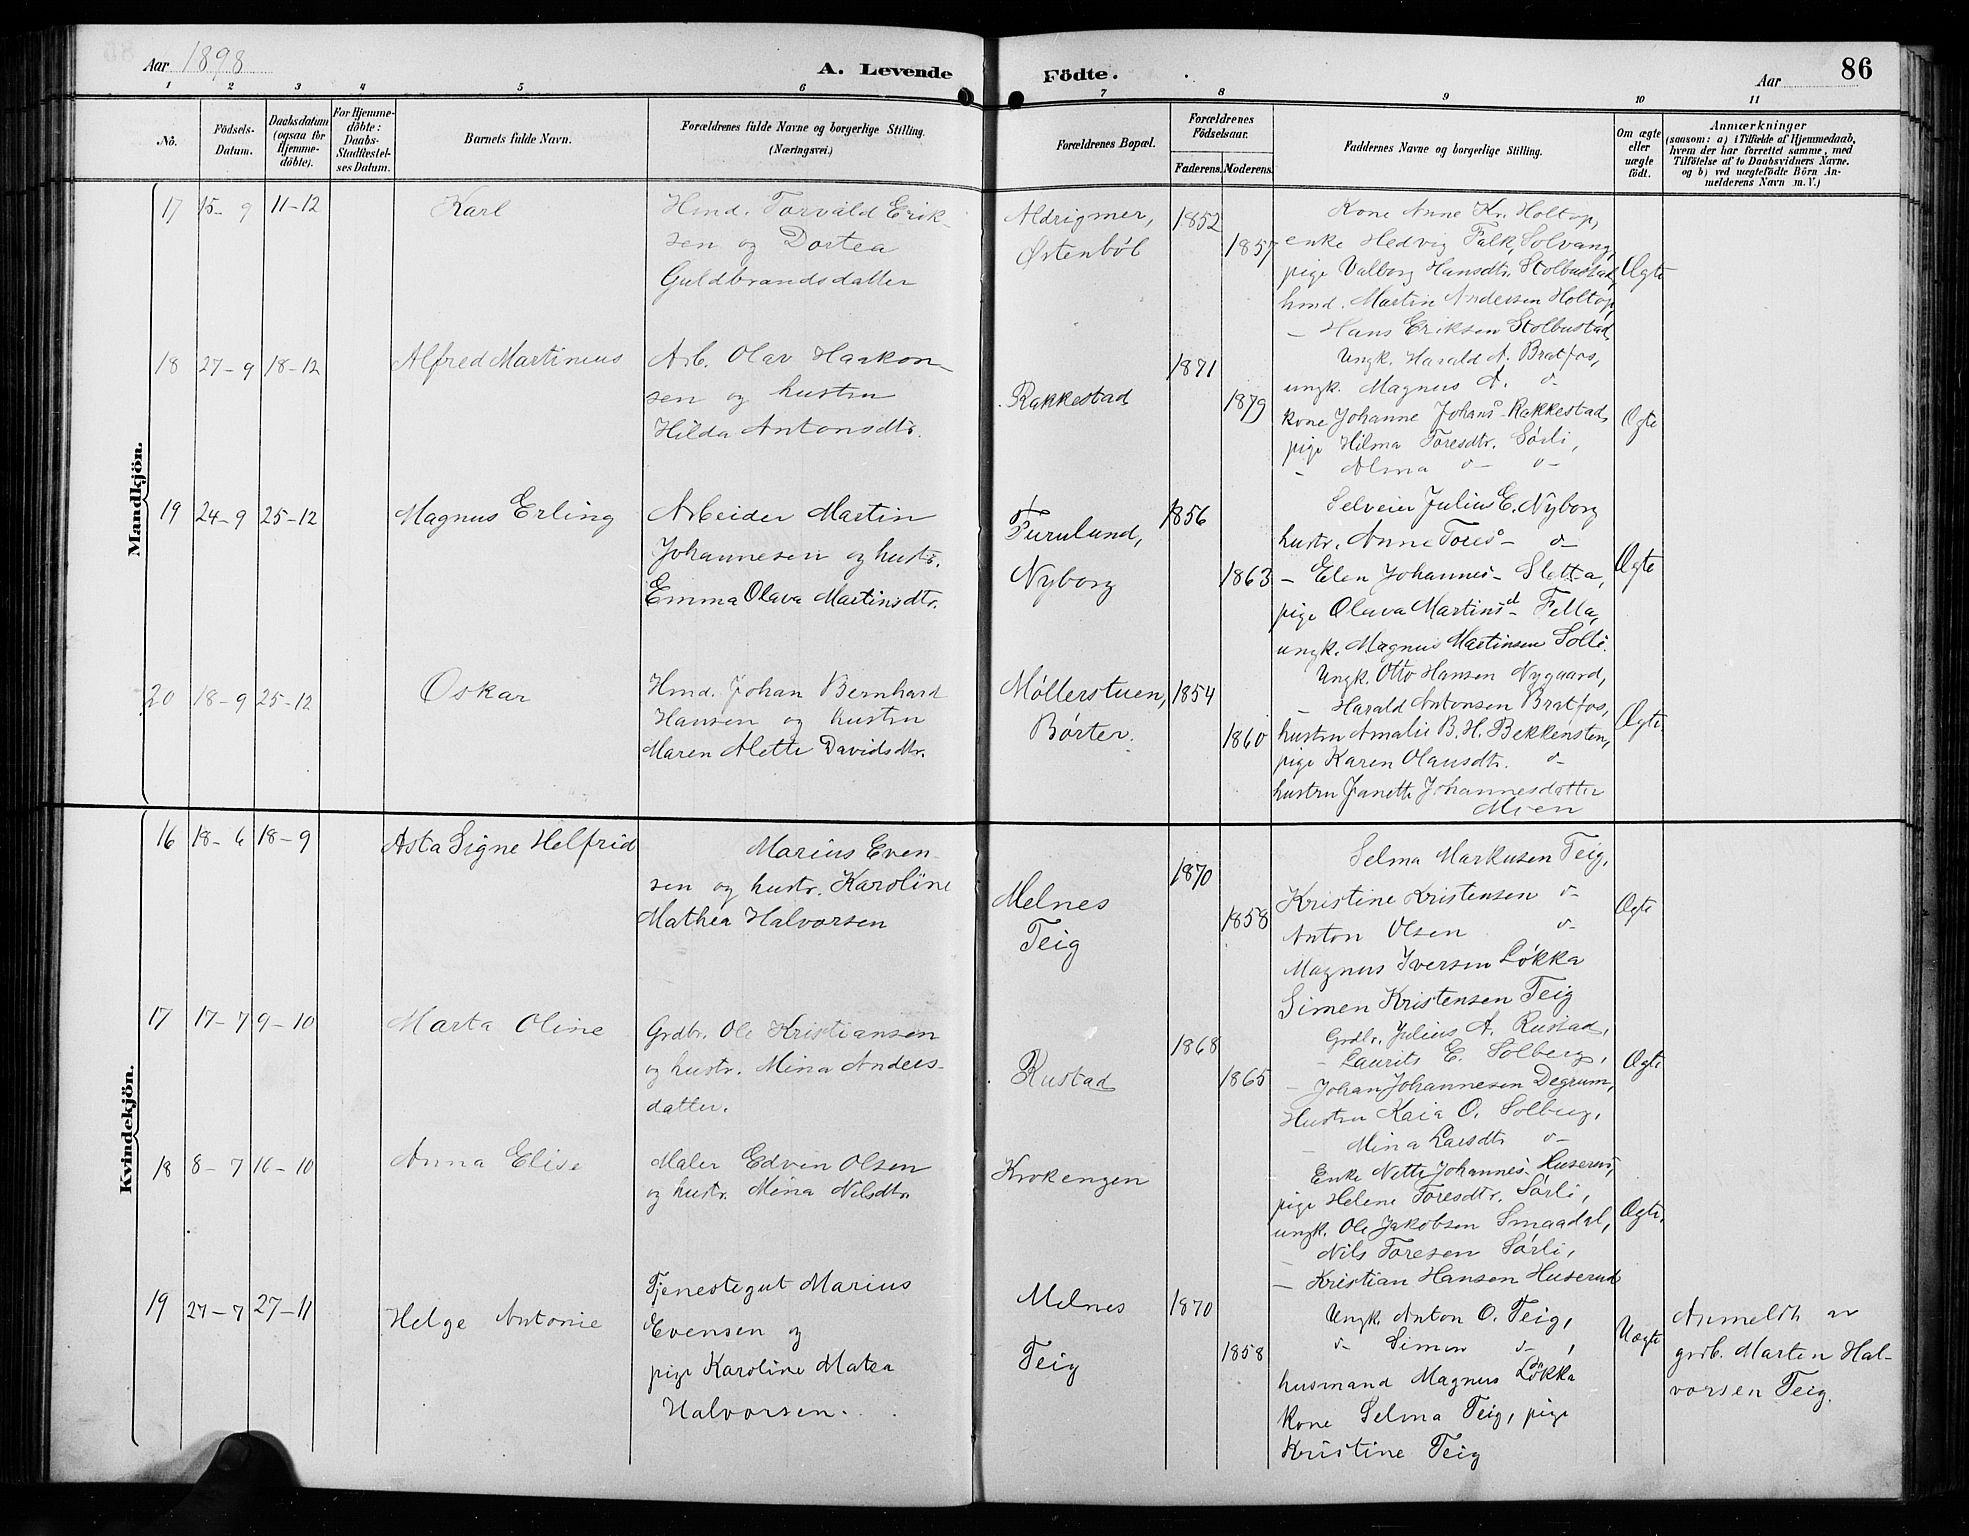 Aar 1898
A. Levende Födte.
Aar
86
1 2 3 4 5 6 7 8 9 10 11
No.
Födsels-
Datum.
Daabsdatum
(ogsaa for
Hjemme-
döbte).
For Hjemme-
döbte:
Daabs-
Stadfæstel-
ses Datum.
Barnets fulde Navn.
Forældrenes fulde Navne og borgerlige Stilling.
(Næringsvei.)
Forældrenes Bopæl.
Forældrenes
Födselsaar.
Faderens. Moderens.
Faddernes Navne og borgerlige Stilling.
Om ægte
eller
uægte
födt.
Anmærkninger
(saasom: a) i Tilfælde af Hjemmedaab,
hvem der har forrettet samme, med
Tilföielse af to Daabsvidners Navne.
og b) ved uægtefödte Börn An-
melderens Navn m. V.)
Mandkjön.
17 15-9 11-12
Karl
Hmd. Torvald Erik-
sen og Dortea
Guldbrandsdatter
Aldrigmer,
Østenböl
1852
1857
Kone Anne Kr. Holtop,
enke Hedvig Falk, Solvang,
pige Valborg Hansdtr. Stolbustad,
hmd. Martin Andersen Holtop,
- Hans Eriksen Stolbustad
Ægte
18 27-9 18-12
Alfred Martineus
Arb. Olav Haakon-
sen og hustru
Hilda Antonsdtr.
Rakkestad
1871
1879
Ungk. Harald A. Bratfos,
ungk. Magnus A. do
kone Johanne Johans- Rakkestad
pige Hilma Toresdtr. Sörli,
- Alma do- do-
Ægte
19 24-9 25-12
Magnus Erling
Arbeider Martin
Johannesen og hustr.
Emma Olava Martinsdtr.
Furulund,
Nyborg
1856
1863
Selveier Julius E. Nyborg
hustr. Anne Tores- do-
- Elen Johannes- Sletta,
pige Olava Martinsd- Fella,
ungk. Magnus Martinsen Solli.
Ægte
20 18-9 25-12
Oskar
Hmd. Johan Bernhard
Hansen og hustru
Maren Alette Davidsdtr.
Möllerstuen,
Börter.
1854
1860
Ungk. Otto Hansen Nygaard,
- Harald Antonsen Bratfos,
hustru Amalie B. H. Bekkensten,
pige Karen Olausdtr. do-
hustru Janette Johannesdatter
Moen
Ægte
Kvindekjön.
16 18-6 18-9
Asta Signe Helfrid
Marius Even-
sen og hustr. Karoline
Mathea Halvorsen
Melnes
Teig
1870
1858
Selma Markusen Teig,
Kristine Kristensen do-
Anton Olsen do-
Magnus Iversen Løkka
Simen Kristensen Teig
Ægte
17 17-7 9-10
Marta Oline
Grdbr. Ole Kristiansen
og hustr. Mina Anders-
datter.
Rustad
1868
1865
Grdbr. Julius A. Rustad,
- Laurits E. Solberg,
- Johan Johannesen Degrum,
Hustru Kaia O. Solberg,
- Mina Larsdtr do-
Ægte
18 8-7 16-10
Anna Elise
Maler Edven Olsen
og hustr. Mina Nilsdtr.
Krokengen
Enke Nette Johannes- Huserud,
pige Helene Toresdtr. Sörli,
ungk. Ole Jakobsen Smaadal,
- Nils Toresen Sörli,
- Kristian Hansen Huserud
Ægte.
19 27-7 27-11
Helge Antonie
Tjenestegut Marius
Evensen og
pige Karoline Matea
Halvorsen.
Melnes
Teig
1870
1858
Ungk. Anton O. Teig,
do- Simen do-,
husmand Magnus Løkka
Kone Selma Teig, pige
Kristine Teig
Uægte
Anmeldt av
grdb. Marten Hal-
vorsen Teig.